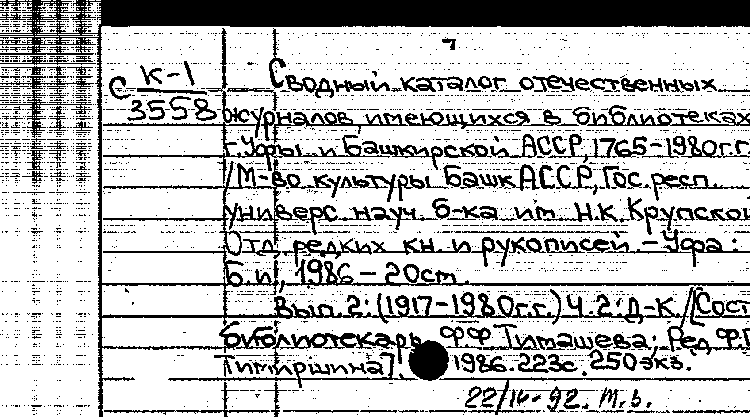 7
С К-1
3558
Сводный каталог отечественных
журналов, имеющихся в библиотеках
г. Уфы и Башкирской АССР, 1765-1980г.г.
/М-во культуры БашкАССР, Гос. респ.
универс. науч. б-ка им. Н.К. Крупской
Отд. редких кн. и рукописей. - Уфа :
Б.и., 1986 - 20см.
Вып. 2: (1917-1980г.г.) Ч. 2: Д-К. /[Сост
библиотекарь Ф.Ф Тимашева; Ред. Ф.Г
Тимиршина]. 1986. 223с. 250экз.
22/IV-92. Т.З.